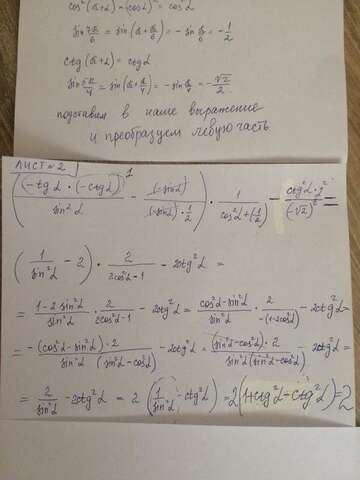 cos²(π+α) = (-cosα)² = cos²α
sin 7π/6 = sin(π + π/6) = - sin π/6 = - 1/2
ctg(π+α) = ctgα
sin 5π/4 = sin(π + π/4) = - sin π/4 = - √2/2
подставим в наше выражение
и преобразуем левую часть
ЛИСТ № 2
((-tgα · (-ctgα))/sin²α - (-sinα)/((-sinα) · 1/2)) · 1/(cos²α + (-1/2)) - ctg²α · 2²/(-√2)² =
(1/sin²α - 2) · 2/(2cos²α - 1) - 2ctg²α =
= (1 - 2sin²α)/sin²α · 2/(2cos²α - 1) - 2ctg²α = (cos²α - sin²α)/sin²α · 2/(-(1 - 2cos²α)) - 2ctg²α =
= -(cos²α - sin²α) · 2/(sin²α (sin²α - cos²α)) - 2ctg²α = (sin²α - cos²α) · 2/(sin²α (sin²α - cos²α)) - 2ctg²α =
= 2/sin²α - 2ctg²α = 2 (1/sin²α - ctg²α) = 2(1 + ctg²α - ctg²α) = 2